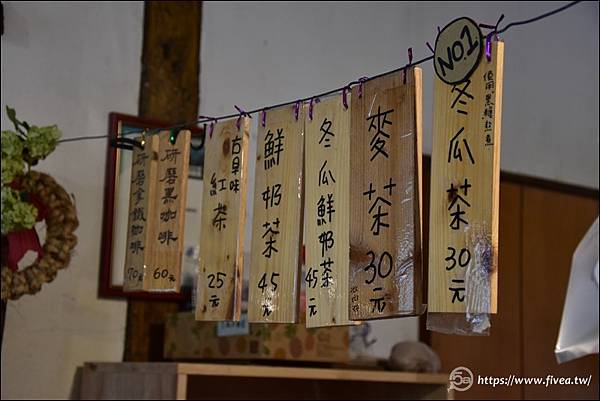 研磨拿鐵咖啡
70元
研磨黑咖啡
60元
古早味
紅茶
25元
鮮奶茶
45元
冬瓜鮮奶茶
45元
麥茶
30元
NO.1
冬瓜茶
30元
https://www.fivea.tw/